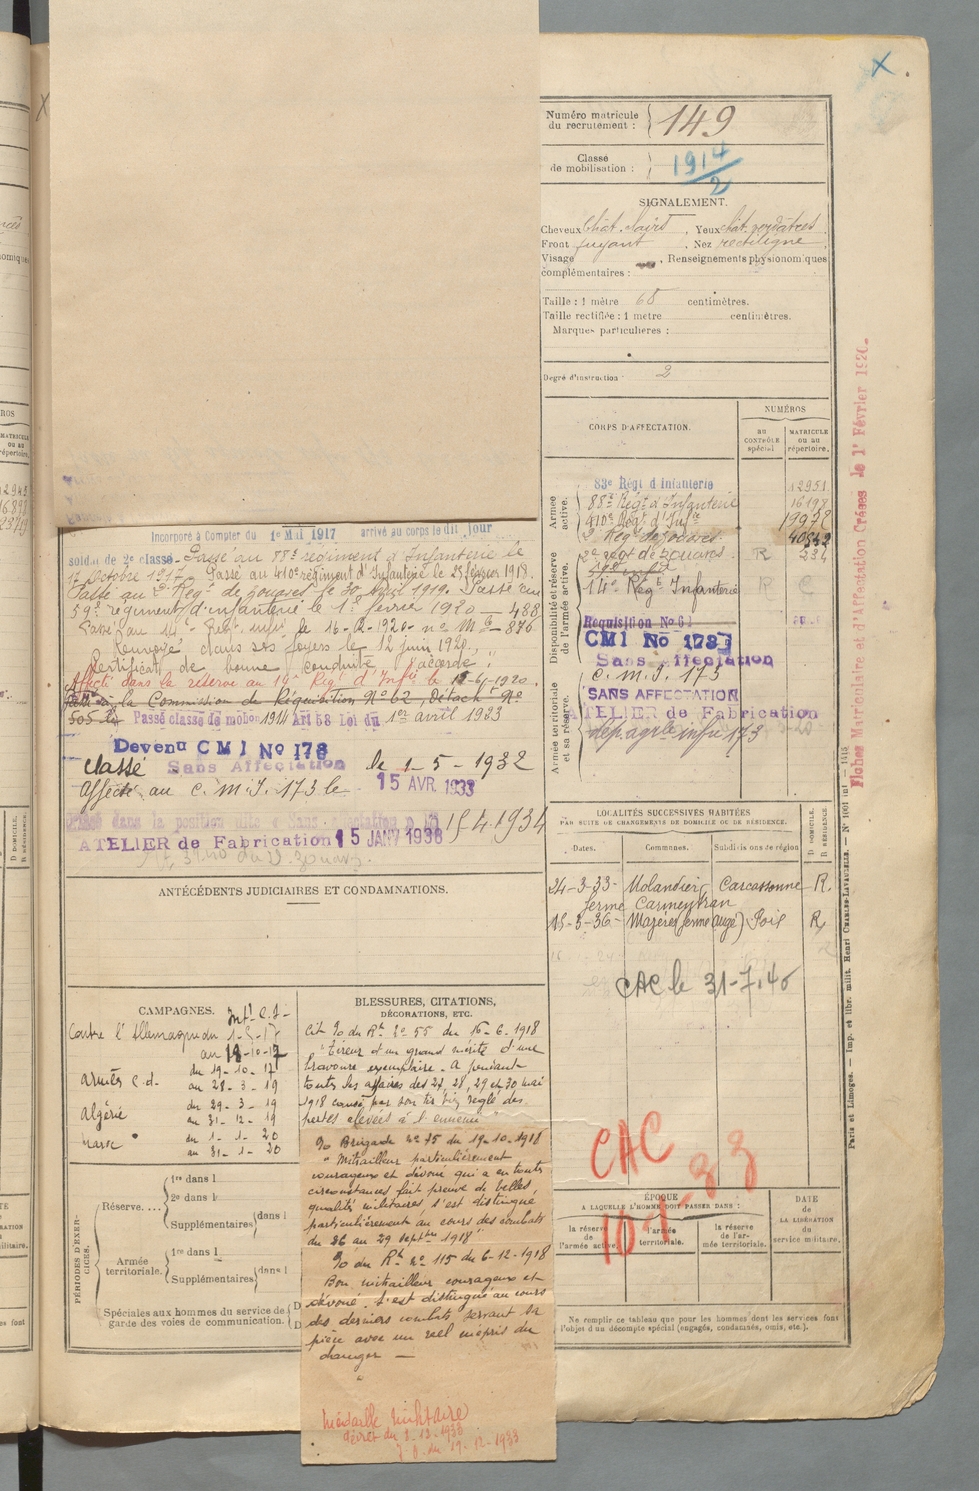 Numéro matricule
du recrutement :
149
Classe
de mobilisation :
1914/2
SIGNALEMENT.
Cheveux chât. clairs, Yeux chât. verdâtres
Front fuyant, Nez rectiligne
Visage , Renseignements physionomiques
complémentaires :
Taille : 1 mètre 68 centimètres.
Taille rectifiée : 1 mètre centimètres.
Marques particulières :
Degré d'instruction : 2
CORPS D'AFFECTATION.
NUMÉROS
au
CONTRÔLE
spécial
MATRICULE
ou au
répertoire.
Armée
active.
83e Régt d'Infanterie 12951
88e Régt d'Infanterie 16198
410e Régt d'Infie 19932
2e Régt de zouaves 40542
Disponibilité et réserve
de l'armée active.
2e régt de zouaves R 234
59e Infie
14e Régt Infanterie R C
Réquisition No 62
CMI No 178
Sans Affectation
Armée territoriale
et sa réserve.
C. M. I. 173
SANS AFFECTATION
ATELIER de Fabrication
Fiches Matriculaire et d'Affectation Créées le 1er Février 1926.
Incorporé à Compter du 1er Mai 1917 arrivé au corps le dit jour
soldat de 2e classe. Passé au 88e régiment d'Infanterie le
17 octobre 1917. Passé au 410e régiment d'Infanterie le 25 février 1918.
Passé au 2e Régt de zouaves le 30 Avril 1919. Passé au
59e régiment d'infanterie le 1er février 1920 — 488
Passé au 14e Régt infie le 16-2-1920 - no Mle - 876
Renvoyé dans ses foyers le 12 juin 1920.
Certificat de bonne conduite "accordé"
Affecté dans la réserve au 14e Régt d'Infie le 12-6-1920.
à la Commission de Réquisition No 62, Détacht No
505
Passé classe de mobon 1914 Art 58 Loi du 1er avril 1923
Devenu CMI No 178
classé Sans Affectation le 1-5-1932
Affecté au C. M. I. 173 le 15 AVR. 1933
Placé dans la position dite « Sans affectation » 15-4-1934
ATELIER de Fabrication 15 JANV 1938
ANTÉCÉDENTS JUDICIAIRES ET CONDAMNATIONS.
LOCALITÉS SUCCESSIVES HABITÉES
PAR SUITE DE CHANGEMENTS DE DOMICILE OU DE RÉSIDENCE.
Dates.
Communes.
Subdivisions de région
D DOMICILE.
R RÉSIDENCE
24-3-33- Molandier Carcassonne R.
ferme Carmentran
15-3-36- Mazères (ferme Augé) Foix R,
CAC le 31-7-40
CAMPAGNES.
Contre l'Allemagne du 1-5-17
au 18-10-17
Armées C.d. du 19-10-17
au 28-3-19
Algérie du 29-3-19
au 31-12-19
Maroc du 1-1-20
au 31-1-20
BLESSURES, CITATIONS,
DÉCORATIONS, ETC.
Cit. %o du Rt no 55 du 16-6-1918
"Tireur d'un grand mérite d'une
bravoure exemplaire. A pendant
toutes les affaires des 27, 28, 29 et 30 mai
1918 causé par son tir bien réglé des
pertes élevées à l'ennemi"
%o Brigade no 75 du 19-10-1918
"Mitrailleur particulièrement
courageux et dévoué qui a en toutes
circonstances fait preuve de belles
qualités militaires, s'est distingué
particulièrement au cours des combats
du 26 au 29 septbre 1918"
%o du Rt no 115 du 6-12-1918
Bon mitrailleur courageux et
dévoué. s'est distingué au cours
des derniers combats servant sa
pièce avec un réel mépris du
danger —
Médaille militaire
décret du 2-12-1933
J. O. du 19-12-1933
PÉRIODES D'EXERCICES.
Réserve....
1re dans l
2e dans l
Supplémentaires dans l
Armée
territoriale.
1re dans l
Supplémentaires dans l
Spéciales aux hommes du service de
garde des voies de communication.
D
D
CAC
ÉPOQUE
A LAQUELLE L'HOMME DOIT PASSER DANS :
la réserve
de
l'armée active.
l'armée
territoriale.
la réserve
de l'ar-
mée territoriale.
DATE
de
LA LIBÉRATION
du
service militaire.
Ne remplir ce tableau que pour les hommes dont les services font
l'objet d'un décompte spécial (engagés, condamnés, omis, etc.).
Paris et Limoges. — Imp. et libr. milit. Henri CHARLES-LAVAUZELLE. — N° 1001